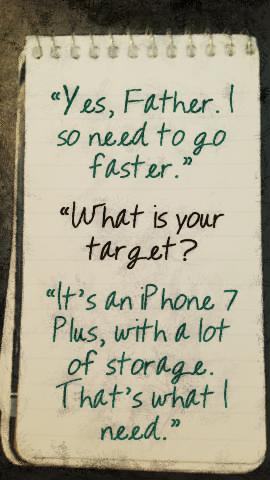 “Yes, Father. I
so need to go
faster.”
“What is your
target?
“It's an iPhone 7
Plus, with a lot
of storage.
That's what I
need.”